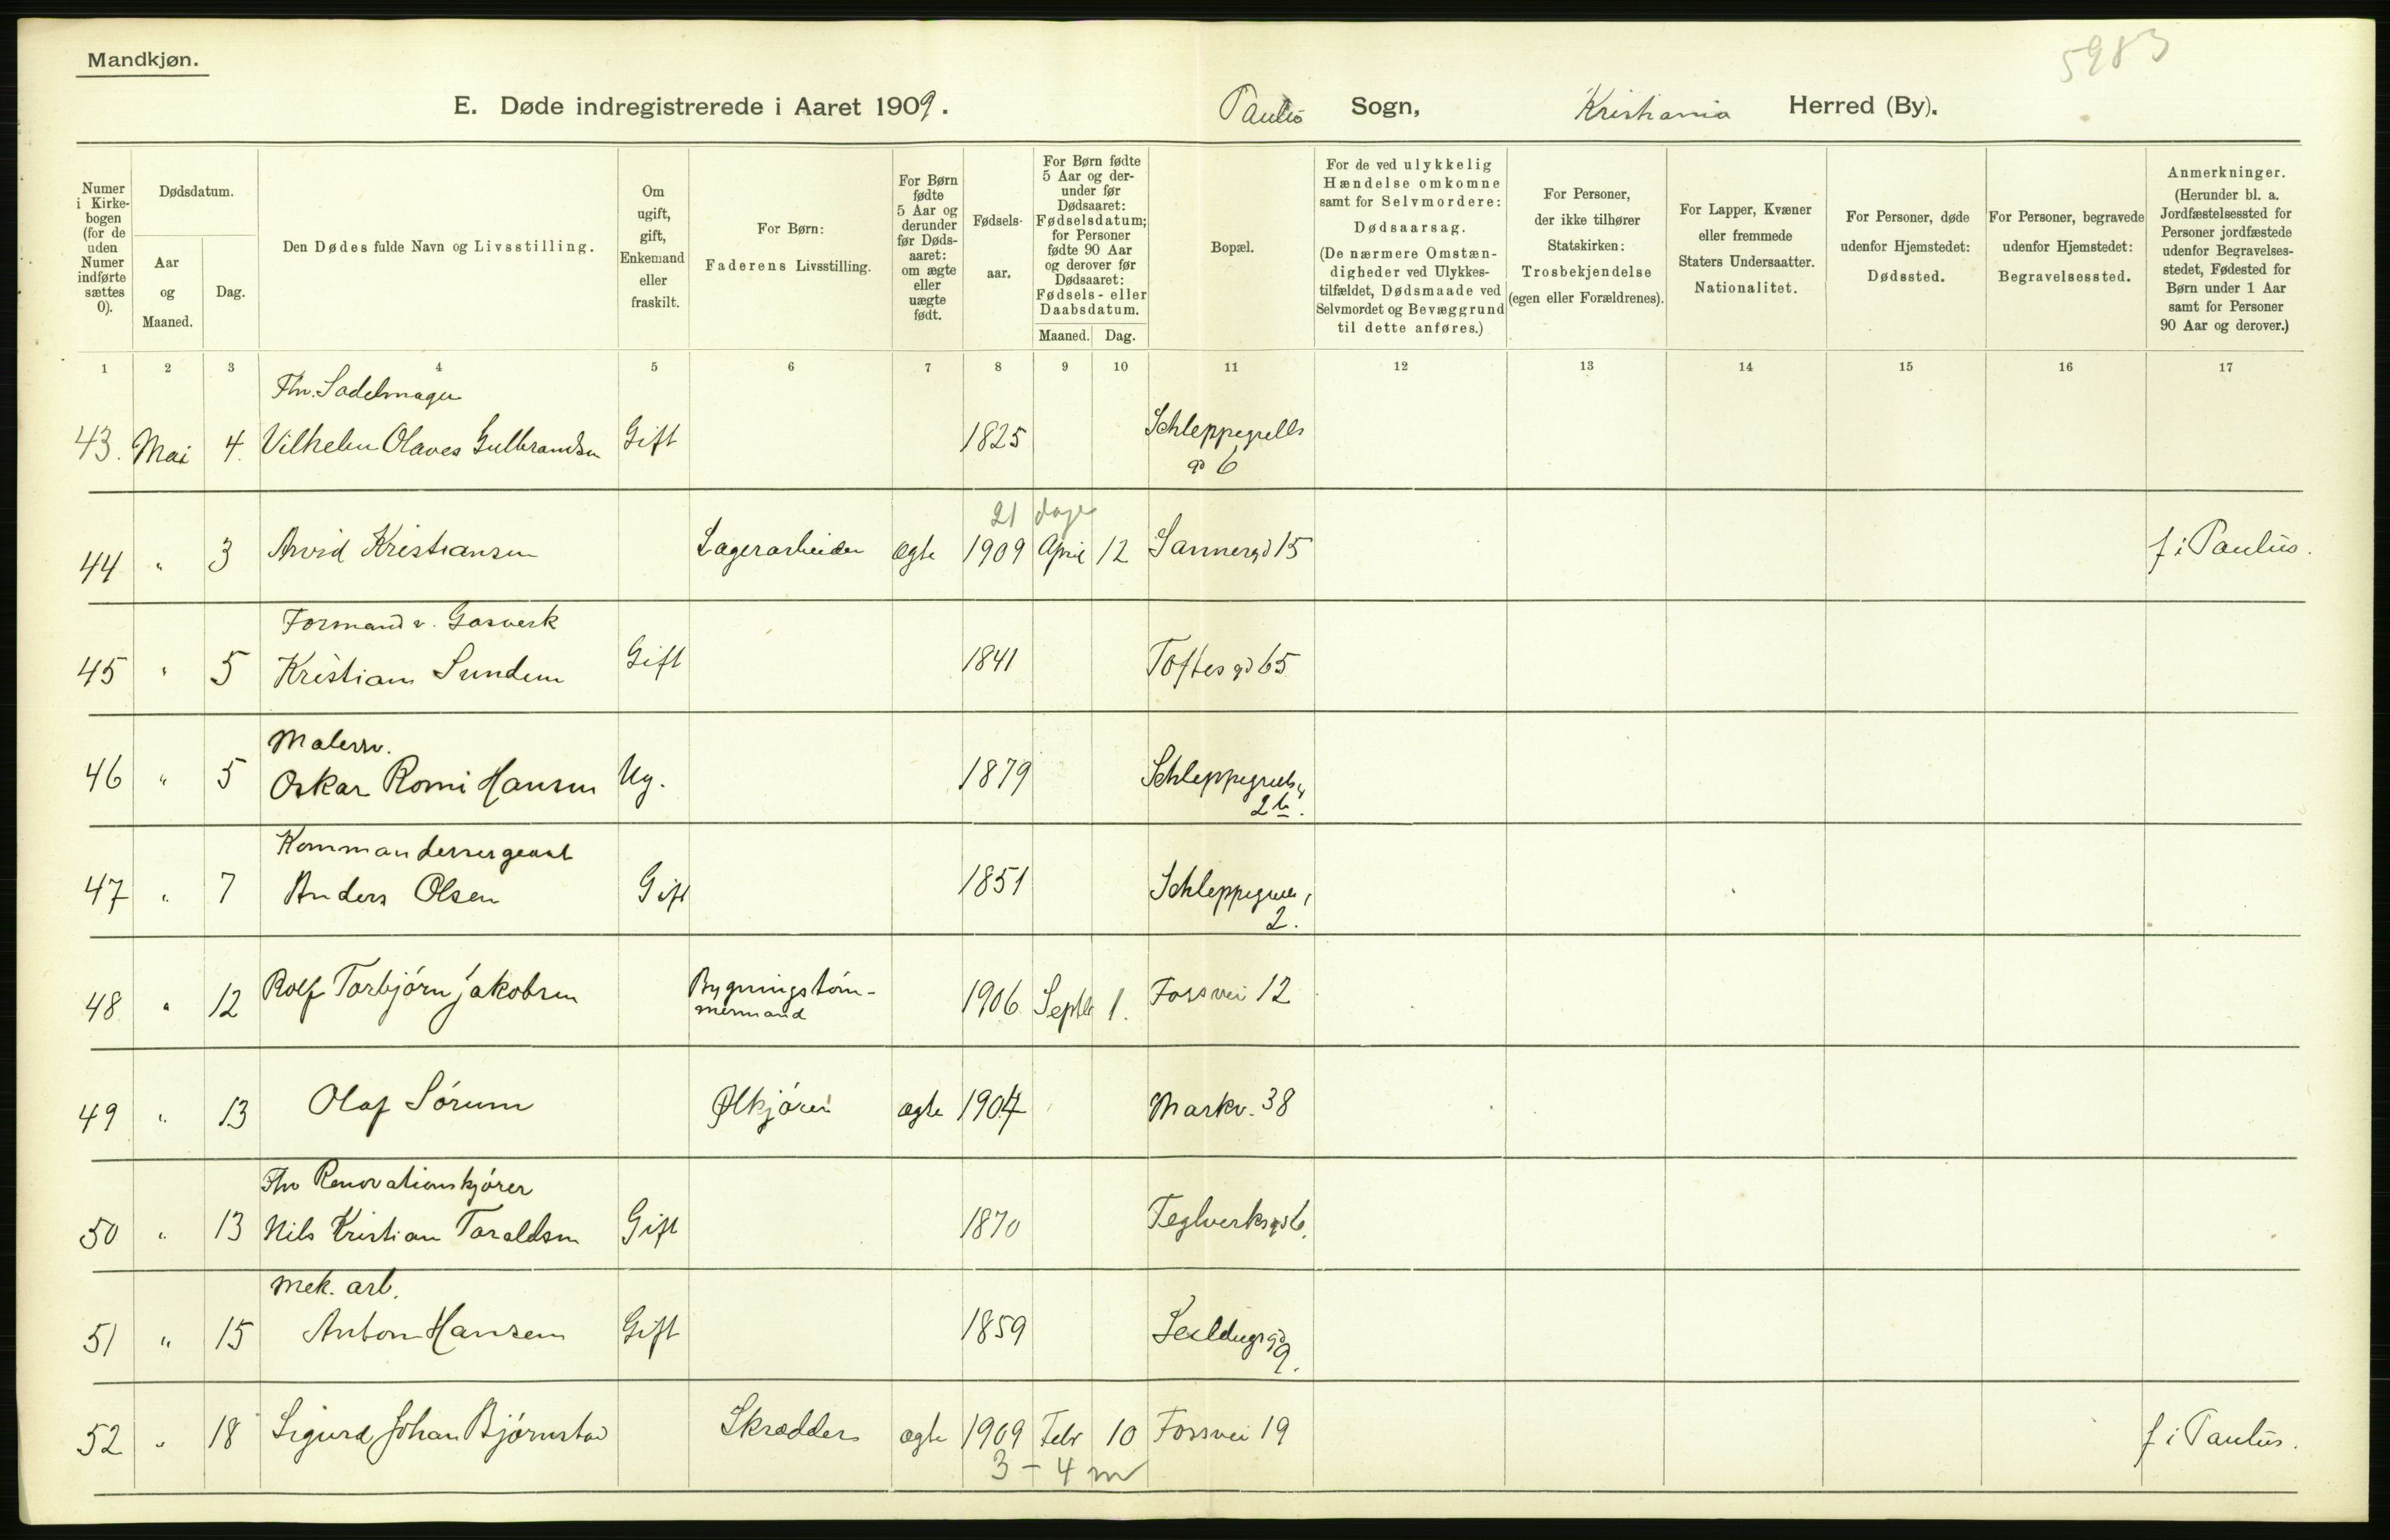 5983
Mandkjøn.
E. Døde indregistrerede i Aaret 1909. Paulus Sogn, Kristiania Herred (By).
Numer i Kirke-bogen (for de uden Numer indførte sættes 0).
Dødsdatum.
Aar og Maaned.
Dag.
Den Dødes fulde Navn og Livsstilling.
Om ugift, gift, Enkemand eller fraskilt.
For Børn: Faderens Livsstilling.
For Børn fødte 5 Aar og derunder før Døds-aaret: om ægte eller uægte født.
Fødsels-aar.
For Børn fødte 5 Aar og der-under før Dødsaaret: Fødselsdatum; for Personer fødte 90 Aar og derover før Dødsaaret: Fødsels- eller Daabsdatum.
Maaned. Dag.
Bopæl.
For de ved ulykkelig Hændelse omkomne samt for Selvmordere: Dødsaarsag. (De nærmere Omstæn-digheder ved Ulykkes-tilfældet, Dødsmaade ved Selvmordet og Bevæggrund til dette anføres.)
For Personer, der ikke tilhører Statskirken: Trosbekjendelse (egen eller Forældrenes).
For Lapper, Kvæner eller fremmede Staters Undersaatter. Nationalitet.
For Personer, døde udenfor Hjemstedet: Dødssted.
For Personer, begravede udenfor Hjemstedet: Begravelsessted.
Anmerkninger. (Herunder bl. a. Jordfæstelsessted for Personer jordfæstede udenfor Begravelses-stedet, Fødested for Børn under 1 Aar samt for Personer 90 Aar og derover.)
1 2 3 4 5 6 7 8 9 10 11 12 13 14 15 16 17
Fhv. Sadelmager
43. Mai 4. Vilhelm Olaves Gulbrandsen Gift 1825 Schleppegrells gd 6
21 dage
44 " 3 Arvid Kristiansen Lagerarbeider ægte 1909 April 12 Sannergd 15 f i Paulus.
Formand v. Gasverk
45 " 5 Kristian Sundem Gift 1841 Toftes gd 65
Malersv.
46 " 5 Oskar Romi Hansen Ug. 1879 Schleppegrells 2b.
Kommandersergeant
47 " 7 Anders Olsen Gift 1851 Schleppegrells 2.
48 " 12 Rolf Torbjörn Jakobsen Bygningstöm-mermand 1906 Septbr 1. Fossvei 12
49 " 13 Olaf Sörum Ølkjörer ægte 1907 Markv. 38
Fhv Renovationskjörer
50 " 13 Nils Kristian Taraldsen Gift 1870 Teglverksgd 6.
Mek. arb.
51 " 15 Anton Hansen Gift 1859 Seildugsgd 9.
52 " 18 Sigurd Johan Björnstad Skrædder ægte 1909 Febr 10 Fossvei 19 f i Paulus.
3 - 4 m